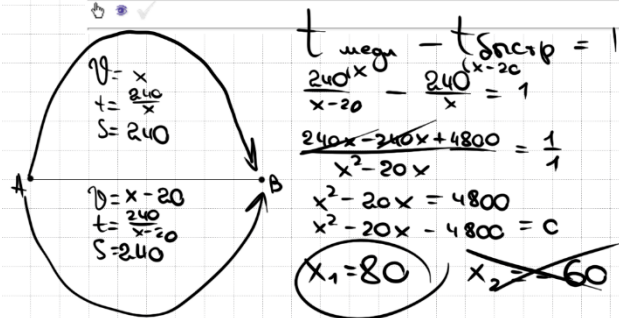 V = x
t = 240/x
S = 240
A
B
V = x - 20
t = 240/x-20
S = 240
t медл - t быстр = 1
240(x/x-20 - 240(x-20/x = 1
240x - 240x + 4800/x² - 20x = 1/1
x² - 20x = 4800
x² - 20x - 4800 = 0
x₁ = 80
x₂ = -60